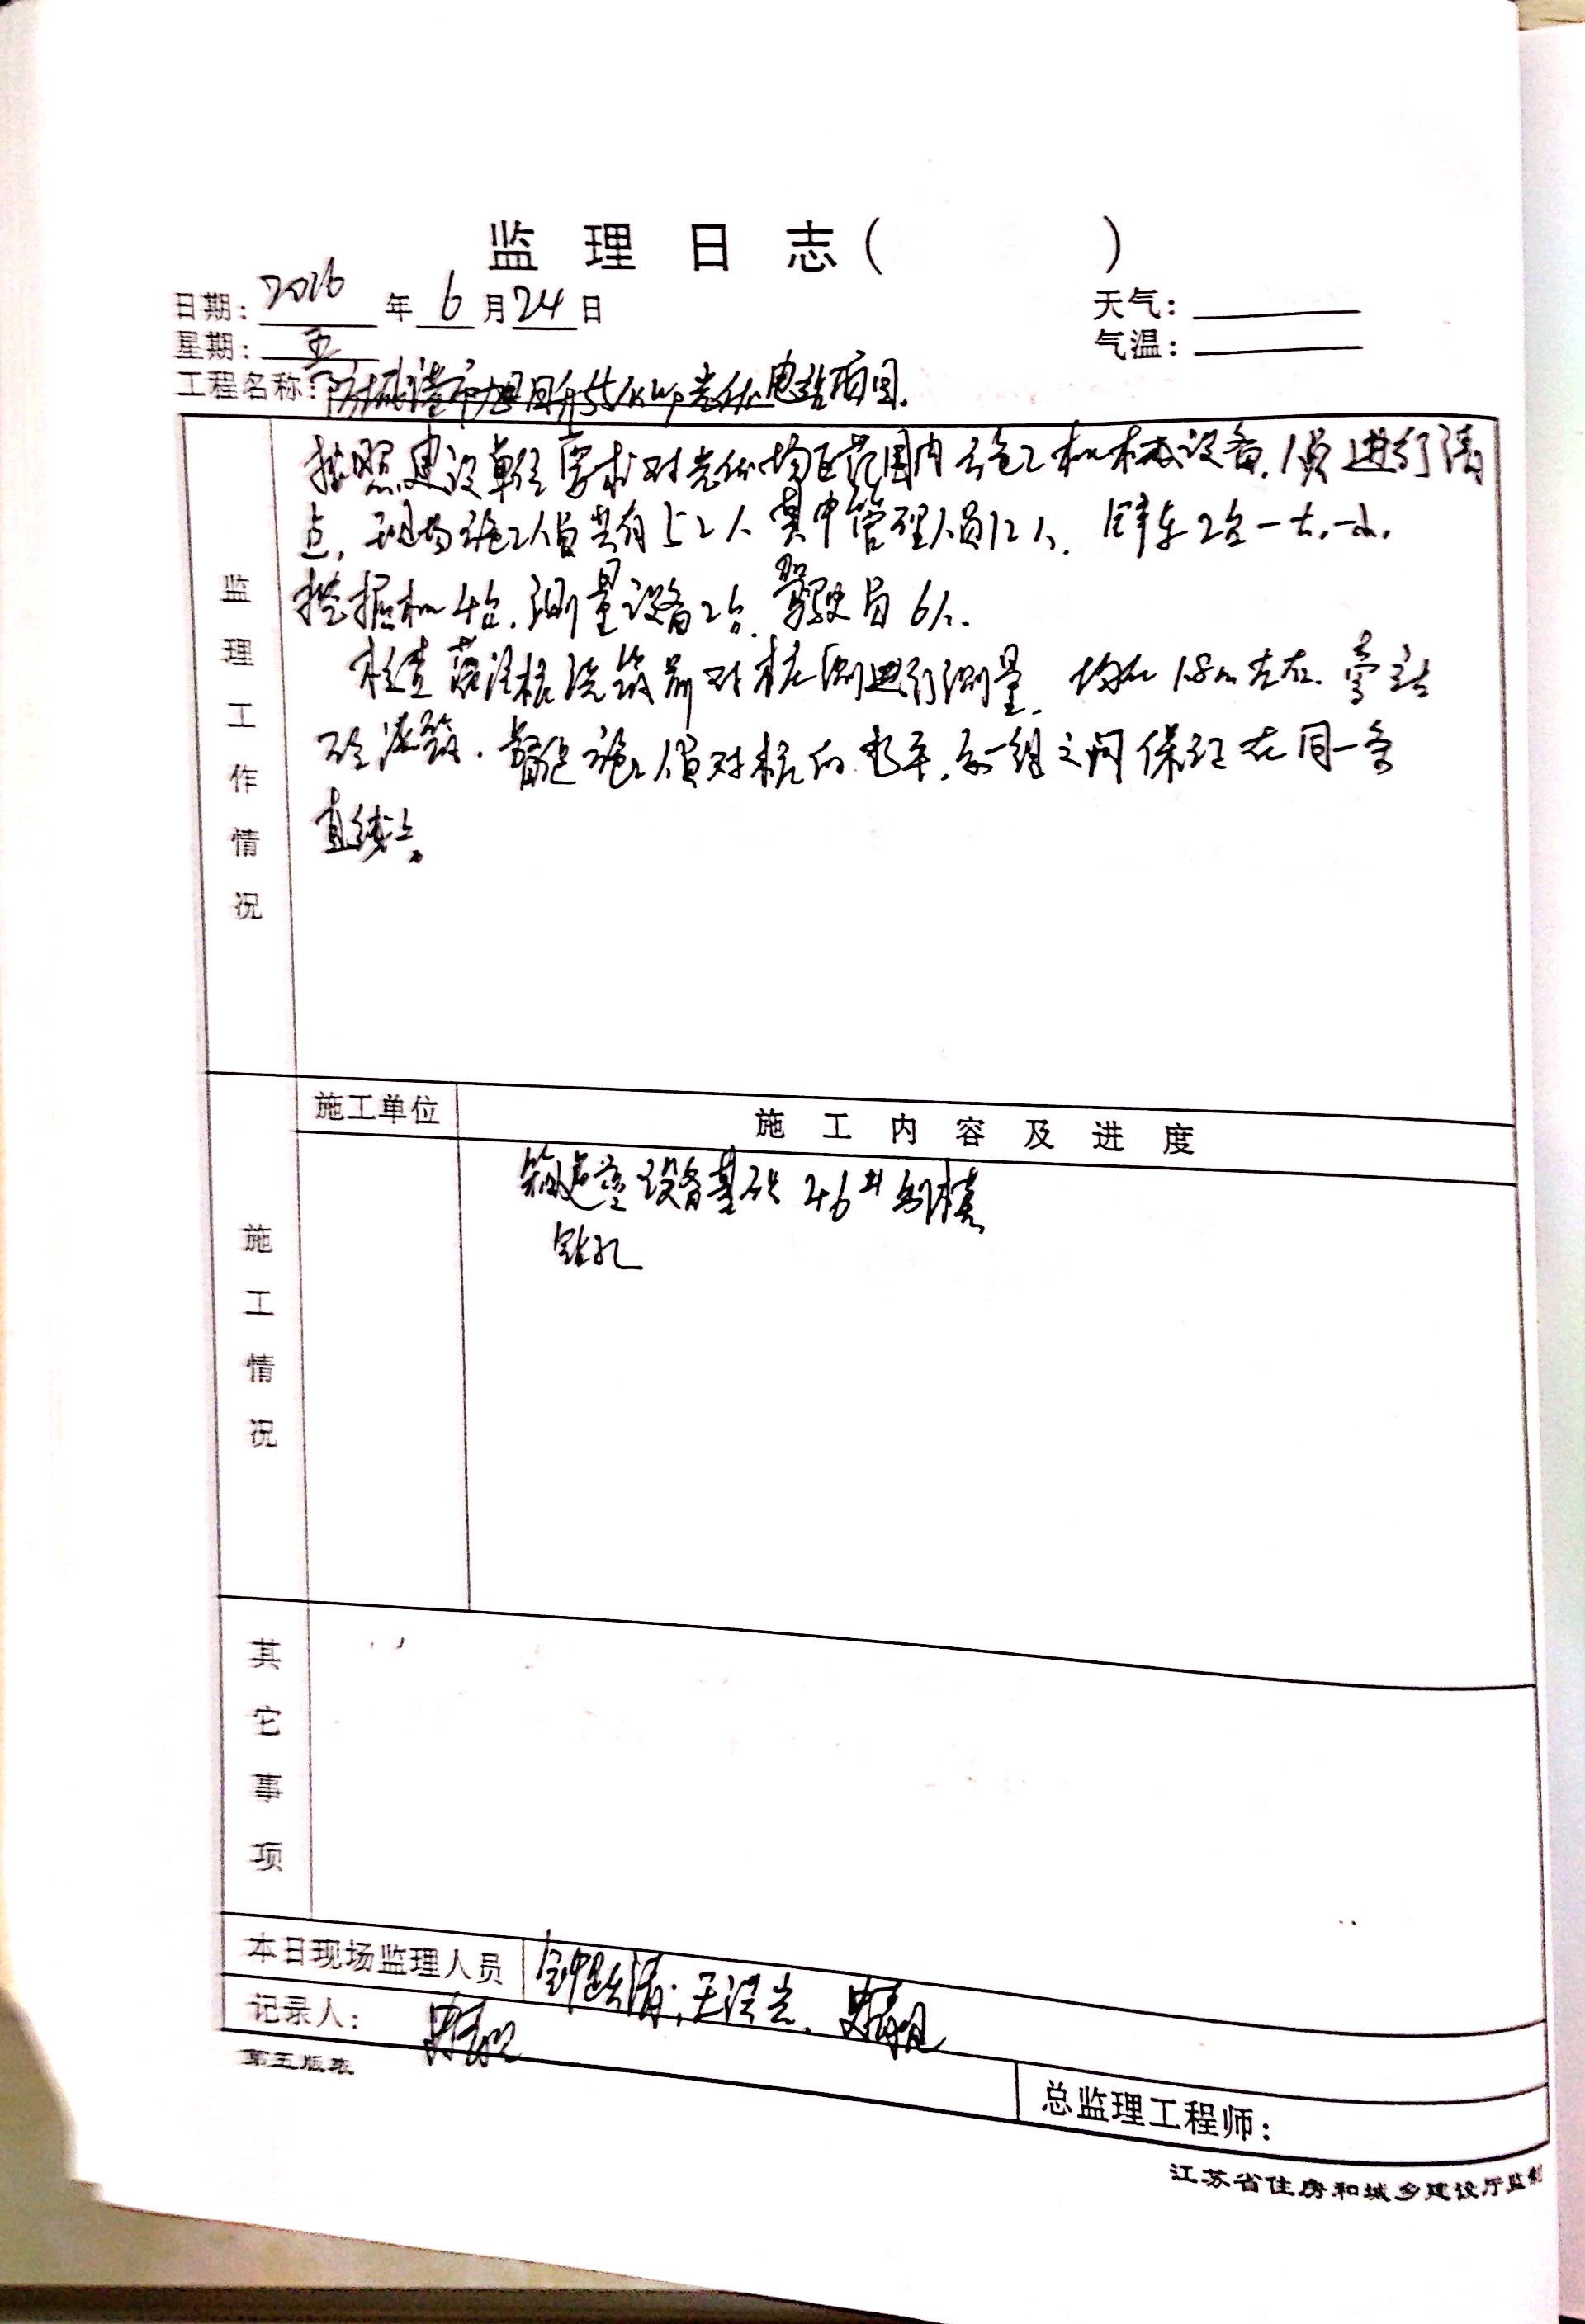 监理日志( )
日期: 2016 年 6 月 24 日 天气:
星期: 五 气温:
工程名称: 防城港市旭日升 光伏电站项目.
监理工作情况
按照建设单位要求对光伏场区范围内施工机械设备.人员进行清
点, 现场施工人员共有52人 其中管理人员12人. 2台一大.一小.
挖掘机4台. 测量设备2台. 驾驶员6人.
检查灌注桩浇筑前对桩 进行测量. 均在1.8m左右. 旁站
砼浇筑. 督促施工人员对桩的水平. 每一组之间保证在同一条
直线上.
施工情况
施工单位 施工内容及进度
设备基础 46#
钻孔
其它事项
本日现场监理人员 钟 清;王 光、
记录人:
第五版表
总监理工程师:
江苏省住房和城乡建设厅监制